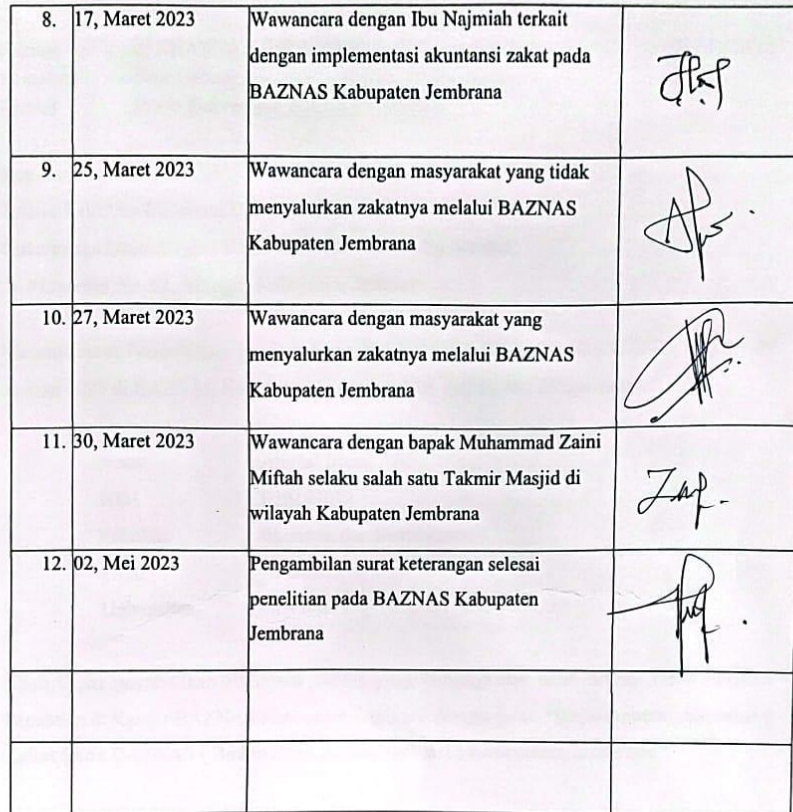 8. 17, Maret 2023 Wawancara dengan Ibu Najmiah terkait
dengan implementasi akuntansi zakat pada
BAZNAS Kabupaten Jembrana
9. 25, Maret 2023 Wawancara dengan masyarakat yang tidak
menyalurkan zakatnya melalui BAZNAS
Kabupaten Jembrana
10. 27, Maret 2023 Wawancara dengan masyarakat yang
menyalurkan zakatnya melalui BAZNAS
Kabupaten Jembrana
11. 30, Maret 2023 Wawancara dengan bapak Muhammad Zaini
Miftah selaku salah satu Takmir Masjid di
wilayah Kabupaten Jembrana
12. 02, Mei 2023 Pengambilan surat keterangan selesai
penelitian pada BAZNAS Kabupaten
Jembrana